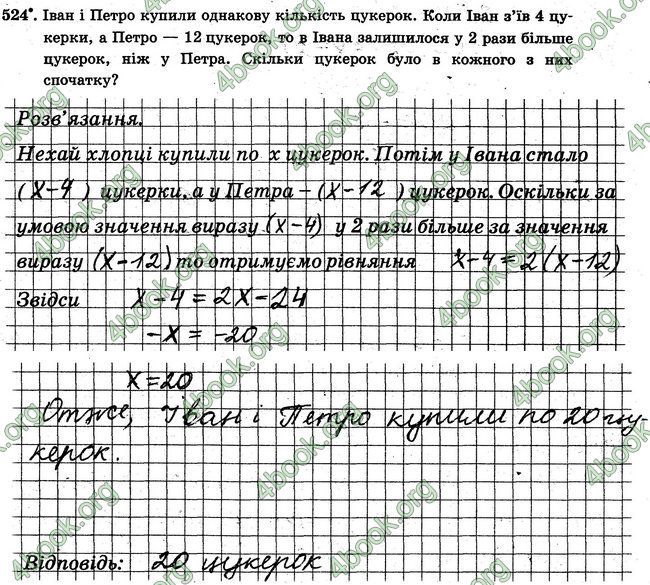 524°. Іван і Петро купили однакову кількість цукерок. Коли Іван з'їв 4 цу-
керки, а Петро — 12 цукерок, то в Івана залишилося у 2 рази більше
цукерок, ніж у Петра. Скільки цукерок було в кожного з них
спочатку?
Розв'язання.
Нехай хлопці купили по x цукерок. Потім у Івана стало
(x-4) цукерки, а у Петра – (x-12) цукерок. Оскільки за
умовою значення виразу (x-4) у 2 рази більше за значення
виразу (x-12) то отримуємо рівняння x-4=2(x-12)
Звідси x-4=2x-24
-x=-20
x=20
Отже, Іван і Петро купили по 20 цу-
керок.
Відповідь: 20 цукерок
4book.org
4book.org
4book.org
4book.org
4book.org
4book.org
4book.org
4book.org
4book.org
4book.org
4book.org